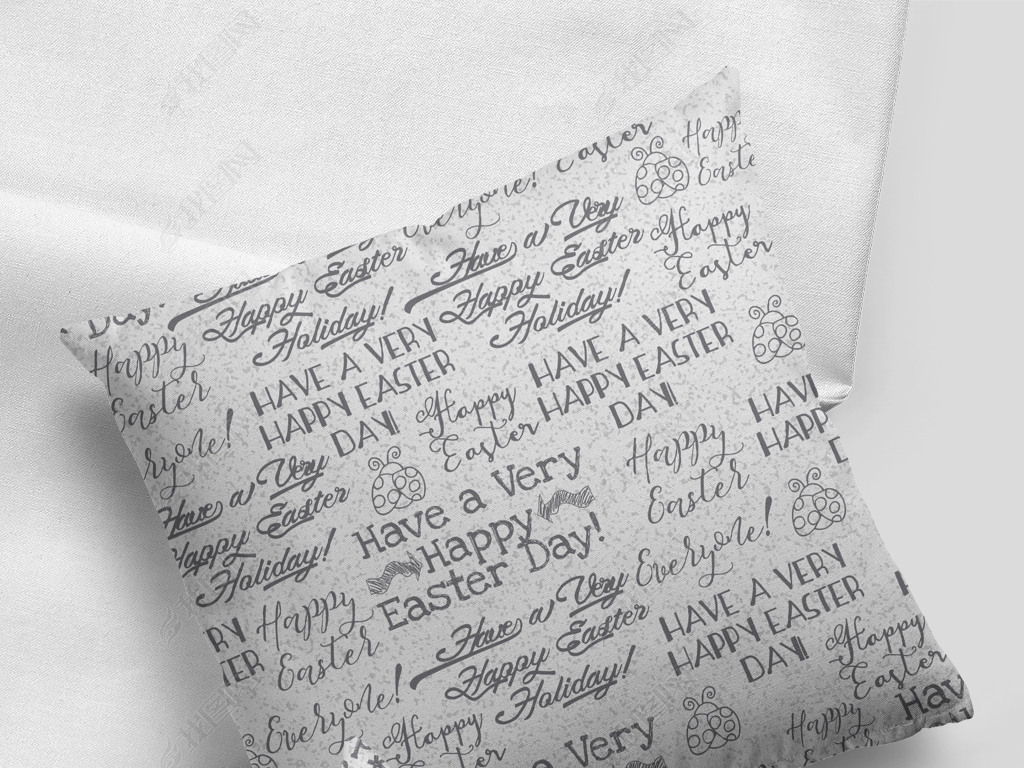 Easter
Happ
Easte
Everyone!
Have a Very
Happy Easter
Holiday!
Happy
Easter
Day!
Have a Very
Happy Easter
Holiday!
Happy
Easter
HAVE A VERY
HAPPY EASTER
DAY!
HAVE A VERY
HAPPY EASTER
DAY!
Happy
Easter
ryone!
HAVE
HAPP
D
Happy
Easter
Everyone!
Have a Very
Happy Easter
Holiday!
Have a Very
Happy
Easter Day!
RY
TER
Happy
Easter
Everyone!
Have a Very
Happy Easter
Holiday!
HAVE A VERY
HAPPY EASTER
DAY!
Happy
Easter
Hav
Happy
Easter
a Very
Happy
Easter